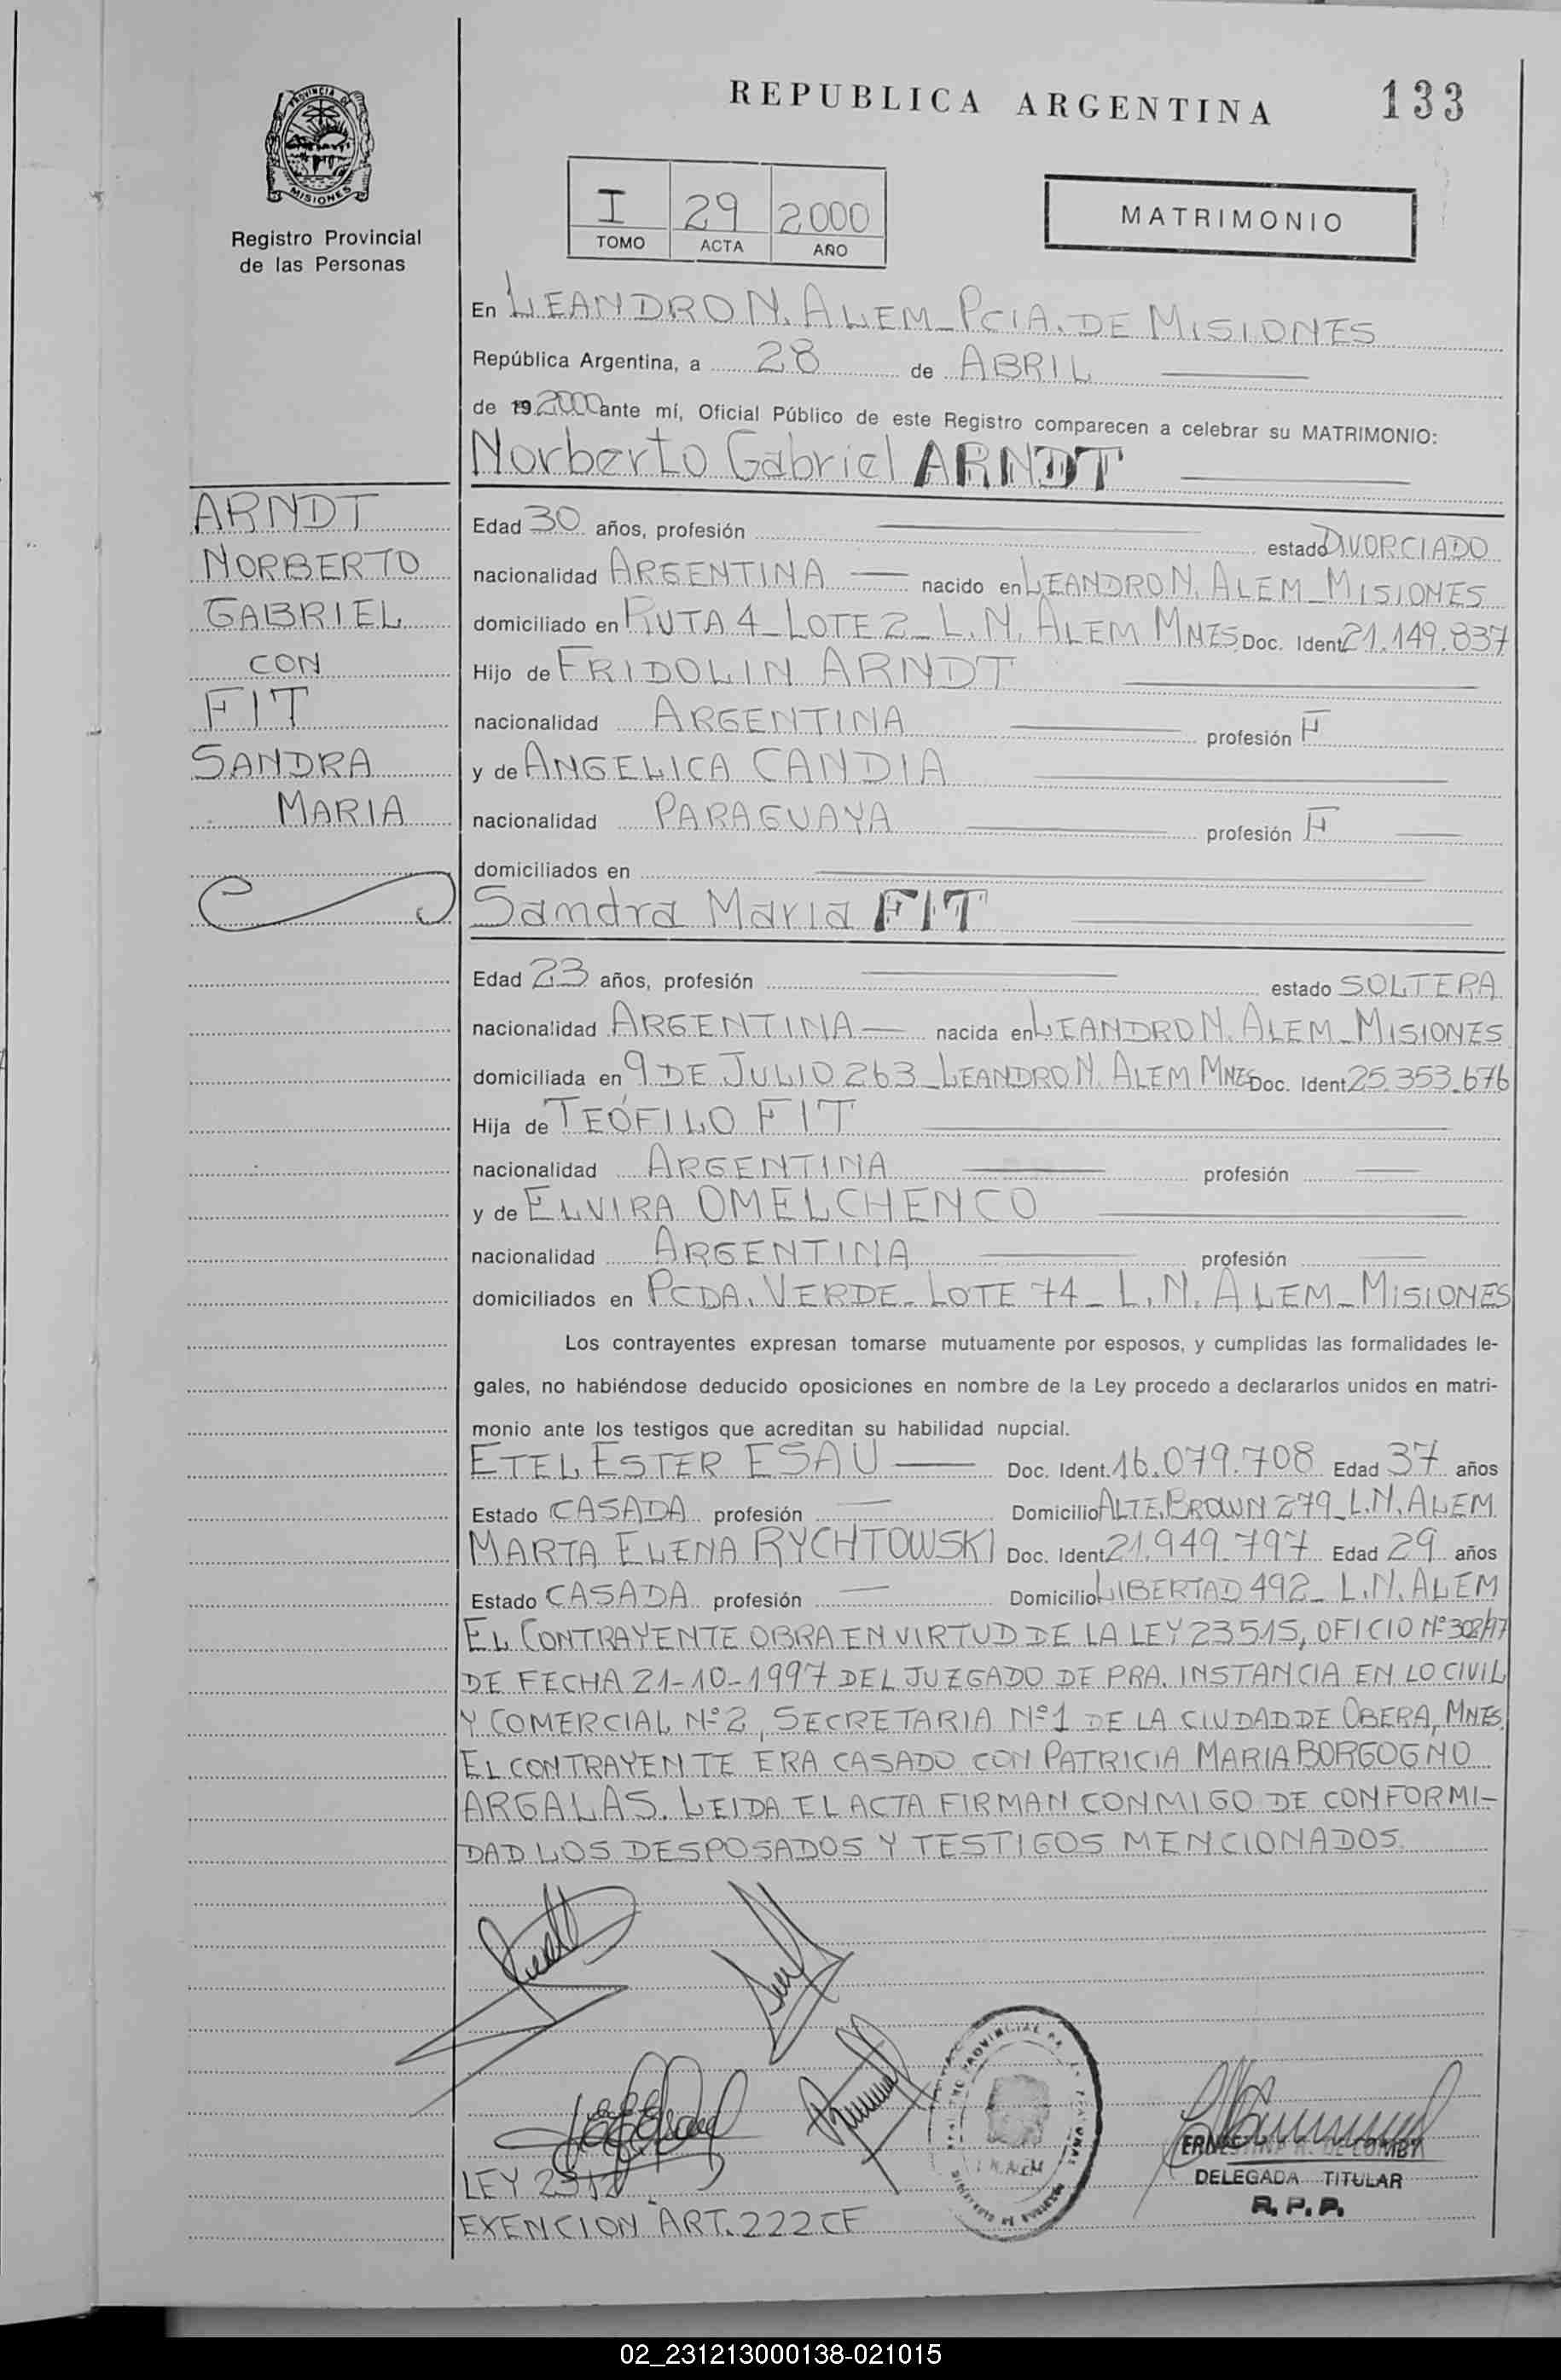 REPUBLICA ARGENTINA 133
PROVINCIA DE
MISIONES
Registro Provincial
de las Personas
I 29 2000
TOMO ACTA AÑO
MATRIMONIO
En LEANDRO N. ALEM_PCIA. DE MISIONES
República Argentina, a 28 de ABRIL
de 19 2000 ante mí, Oficial Público de este Registro comparecen a celebrar su MATRIMONIO:
Norberto Gabriel ARNDT
ARNDT
NORBERTO
GABRIEL
CON
FIT
SANDRA
MARIA
Edad 30 años, profesión estado DIVORCIADO
nacionalidad ARGENTINA nacido en LEANDRO N. ALEM_MISIONES
domiciliado en RUTA 4_LOTE 2_L.N. ALEM MNES Doc. Ident. 21.149.837
Hijo de FRIDOLIN ARNDT
nacionalidad ARGENTINA profesión F
y de ANGELICA CANDIA
nacionalidad PARAGUAYA profesión F
domiciliados en
Sandra Maria FIT
Edad 23 años, profesión estado SOLTERA
nacionalidad ARGENTINA nacida en LEANDRO N. ALEM_MISIONES
domiciliada en 9 DE JULIO 263_LEANDRO N. ALEM MNES Doc. Ident. 25.353.676
Hija de TEÓFILO FIT
nacionalidad ARGENTINA profesión
y de ELVIRA OMELCHENCO
nacionalidad ARGENTINA profesión
domiciliados en PCDA. VERDE_LOTE 74_L.N. ALEM_MISIONES
Los contrayentes expresan tomarse mutuamente por esposos, y cumplidas las formalidades le-
gales, no habiéndose deducido oposiciones en nombre de la Ley procedo a declararlos unidos en matri-
monio ante los testigos que acreditan su habilidad nupcial.
ETEL ESTER ESAU Doc. Ident. 16.079.708 Edad 37 años
Estado CASADA profesión Domicilio ALTE. BROWN 279_L.N. ALEM
MARTA ELENA RYCHTOWSKI Doc. Ident. 21.949.797 Edad 29 años
Estado CASADA profesión Domicilio LIBERTAD 492_L.N. ALEM
EL CONTRAYENTE OBRA EN VIRTUD DE LA LEY 23515, OFICIO Nº 308/97
DE FECHA 21-10-1997 DEL JUZGADO DE PRA. INSTANCIA EN LO CIVIL
Y COMERCIAL Nº 2, SECRETARIA Nº 1 DE LA CIUDAD DE OBERA, MNES.
EL CONTRAYENTE ERA CASADO CON PATRICIA MARIA BORGOGNO
ARGALAS. LEIDA EL ACTA FIRMAN CONMIGO DE CONFORMI-
DAD LOS DESPOSADOS Y TESTIGOS MENCIONADOS.
L.N. ALEM
DELEGADA TITULAR
R.P.P.
LEY
EXENCION ART. 222 CF
02_231213000138-021015